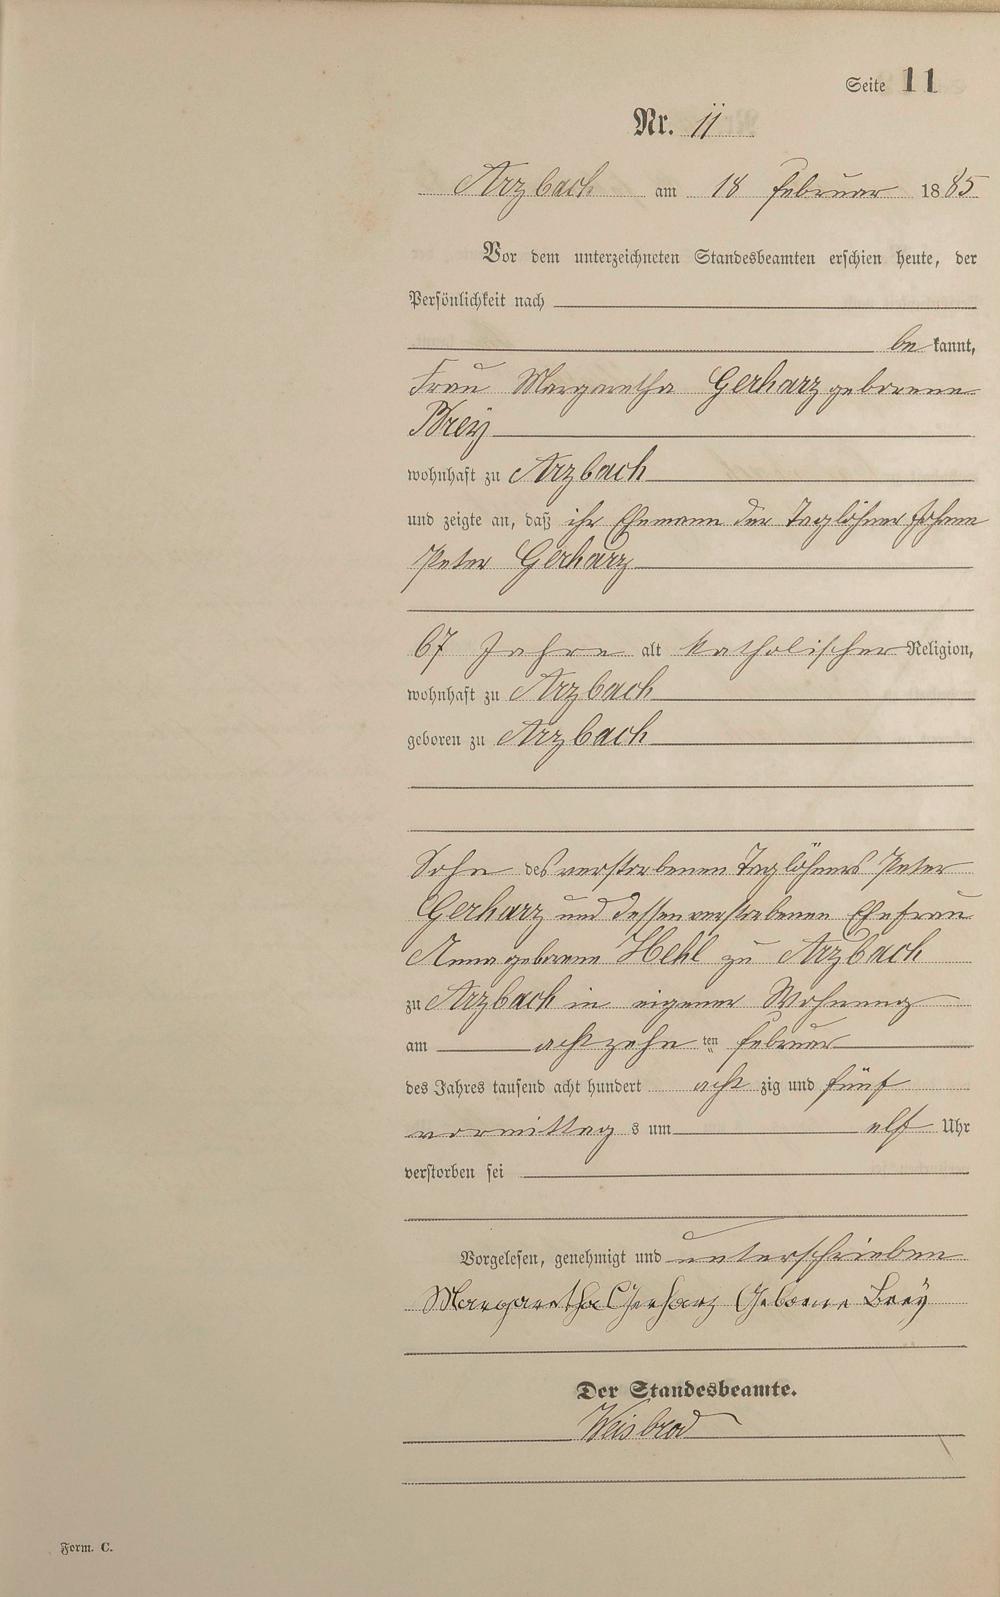 Seite 11
Nr. 11
Arzbach am 18 Februar 1885
Vor dem unterzeichneten Standesbeamten erschien heute, der
Persönlichkeit nach
be kannt,
Frau Margaretha Gerharz geborene
Brey
wohnhaft zu Arzbach
und zeigte an, daß ihr Ehemann der Taglöhner Johann
Peter Gerharz
67 Jahre alt katholischer Religion,
wohnhaft zu Arzbach
geboren zu Arzbach
Sohn des verstorbenen Taglöhners Peter
Gerharz und dessen verstorbenen Ehefrau
Anna geborene Hehl zu Arzbach
zu Arzbach in eigener Wohnung
am achtzehn ten Februar
des Jahres tausend acht hundert acht zig und fünf
vormittag s um elf Uhr
verstorben sei
Vorgelesen, genehmigt und unterschrieben
Margaretha Gerharz Geborne Breÿ
Der Standesbeamte.
Weisbrod
Form. C.